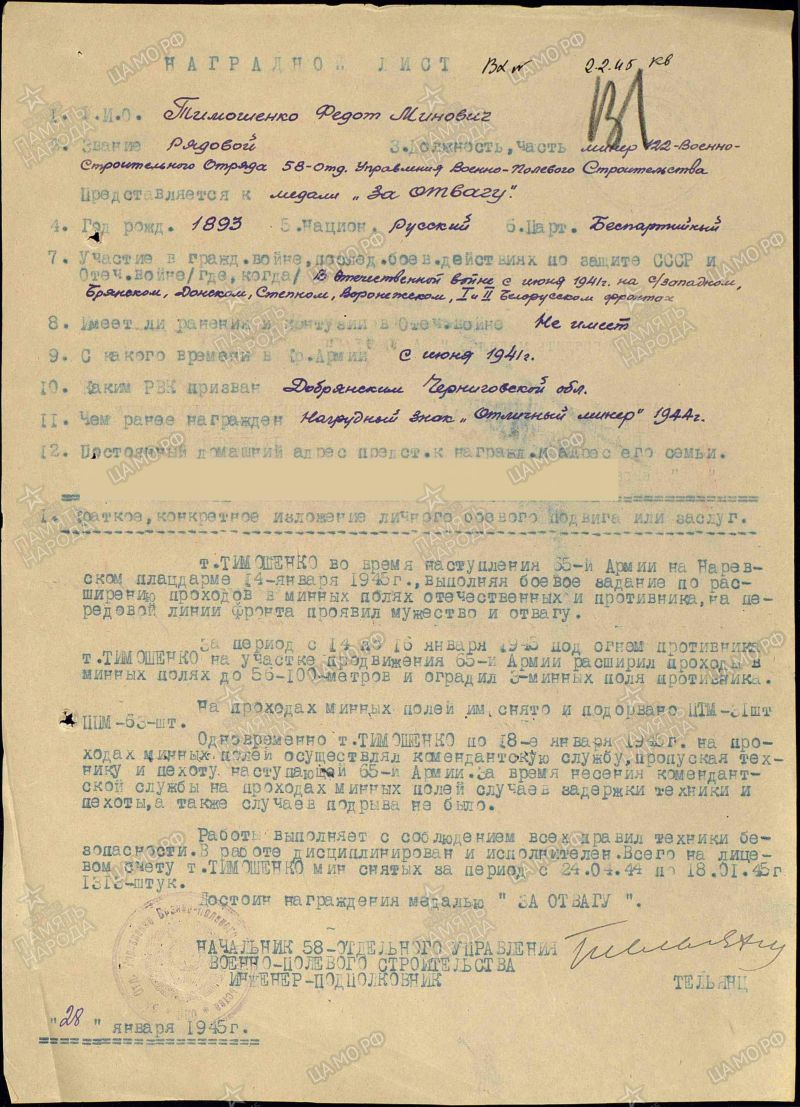 НАГРАДНОЙ ЛИСТ
2.2.45 кв
1. Ф.И.О. Тимошенко Федот Минович
2. Звание Рядовой 3. Должность, часть минер 122-Военно-
Строительного Отряда 58-отд. Управления Военно-Полевого Строительства
Представляется к медали „За отвагу“.
4. Год рожд. 1893 5. Национ. Русский 6. Парт. Беспартийный
7. Участие в гражд.войне,послед.боев.действиях по защите СССР и
Отеч.войне/где,когда/ В Отечественной войне с июня 1941г. на с/западном,
Брянском, Донском, Степном, Воронежском, I и II Белорусском фронтах
8. Имеет ли ранения и контузии в Отеч.войне Не имеет
9. С какого времени в Кр.Армии с июня 1941г.
10. Каким РВК призван Добрянским Черниговской обл.
11. Чем ранее награжден Нагрудный знак „Отличный минер“ 1944г.
12. Постоянный домашний адрес предст.к награжд.и адрес его семьи.
1. Краткое,конкретное изложение личного боевого подвига или заслуг.
т.ТИМОШЕНКО во время наступления 65-й Армии на Нарев-
ском плацдарме 14-января 1945г.,выполняя боевое задание по рас-
ширению проходов в минных полях отечественных и противника,на пе-
редовой линии фронта проявил мужество и отвагу.
За период с 14 по 16 января 1945 под огнем противника
т.ТИМОШЕНКО на участке продвижения 65-й Армии расширил проходы в
минных полях до 56-100-метров и оградил 3-минных поля противника.
На проходах минных полей им снято и подорвано ПТМ-31шт
ППМ-53-шт.
Одновременно т.ТИМОШЕНКО по 18-е января 1945г. на про-
ходах минных полей осуществлял комендантскую службу,пропуская тех-
нику и пехоту наступающей 65-й Армии.За время несения комендант-
ской службы на проходах минных полей случаев задержки техники и
пехоты,а также случаев подрыва не было.
Работы выполняет с соблюдением всех правил техники бе-
зопасности.В работе дисциплинирован и исполнителен.Всего на лице-
вом счету т.ТИМОШЕНКО мин снятых за период с 24.04.44 по 18.01.45г
1313-штук.
Достоин награждения медалью " ЗА ОТВАГУ ".
НАЧАЛЬНИК 58-ОТДЕЛЬНОГО УПРАВЛЕНИЯ
ВОЕННО-ПОЛЕВОГО СТРОИТЕЛЬСТВА
ИНЖЕНЕР-ПОДПОЛКОВНИК ТЕЛЬЯНЦ
"28" января 1945г.
ПАМЯТЬ НАРОДА
ЦАМО.РФ